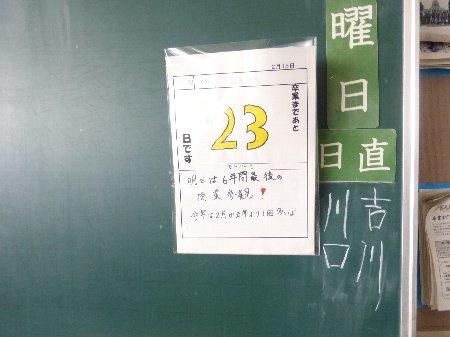 曜日
日直
吉川
川口
2月15日
卒業まであと
23
日です
明日は6年間最後の
授業参観!
今年は2月が去年より1日多いよ